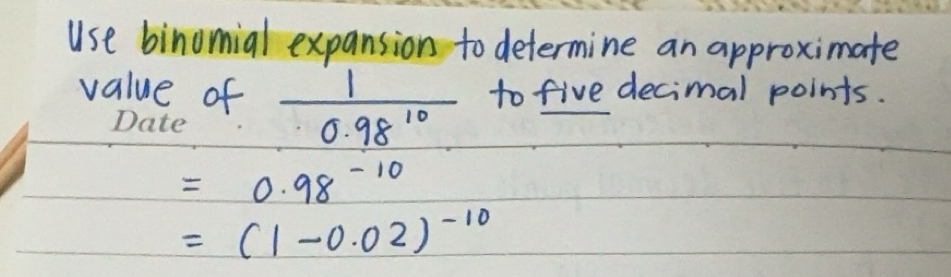 Use binomial expansion to determine an approximate
value of 1/0.98^10 to five decimal points.
Date
= 0.98^-10
= (1-0.02)^-10